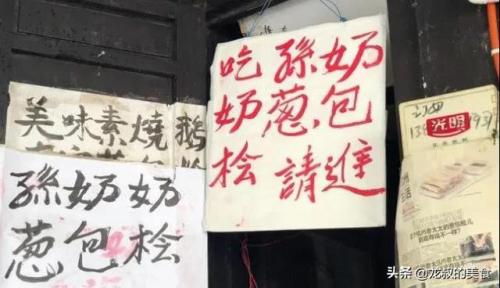 美味素燒鵝
孫奶奶
葱包桧
吃孫奶
奶葱包
桧請進
光明
头条 @龙叔的美食